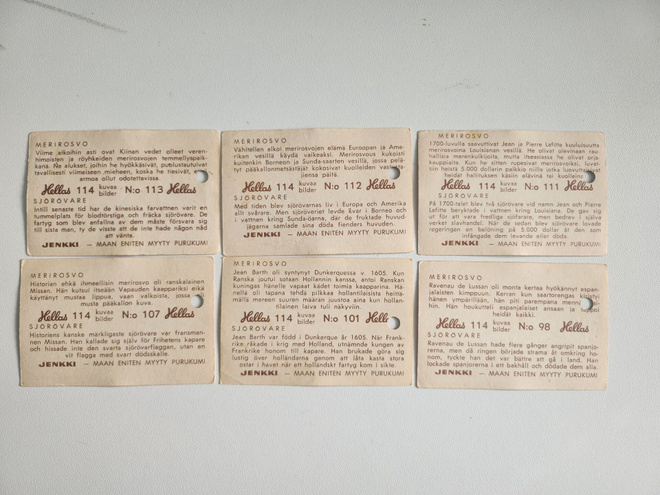 MERIROSVO
Viime aikoihin asti ovat Kiinan vedet olleet veren-
himoisten ja röyhkeiden merirosvojen temmellyspaik-
kana. Ne alukset, joihin he hyökkäsivät, puolustautuivat
tavallisesti viimeiseen mieheen, koska he tiesivät, ettei
armoa ollut odotettavissa.
Hellas 114 kuvaa bilder N:o 113 Hellas
SJÖRÖVARE
Intill senaste tid har de kinesiska farvattnen varit en
tummelplats för blodtörstiga och fräcka sjörövare. De
fartyg som blev anfallna av dem måste försvara sig
till sista man, ty de visste att de inte hade någon nåd
att vänta.
JENKKI — MAAN ENITEN MYYTY PURUKUMI
MERIROSVO
Vähitellen alkoi merirosvojen elämä Euroopan ja Ame-
rikan vesillä käydä vaikeaksi. Merirosvous kukoisti
kuitenkin Borneon ja Sunda-saarten vesillä, jossa pelä-
tyt pääkallonmetsästäjät kokosivat kuolleiden vastus-
tajiensa päitä.
Hellas 114 kuvaa bilder N:o 112 Hellas
SJÖRÖVARE
Med tiden blev sjörövarnas liv i Europa och Amerika
allt svårare. Men sjöröveriet levde kvar i Borneo och
i vattnen kring Sunda-öarna, där de fruktade huvud-
jägarna samlade sina döda fienders huvuden.
JENKKI — MAAN ENITEN MYYTY PURUKUMI
MERIROSVO
1700-luvulla saavuttivat Jean ja Pierre Lafitte kuuluisuutta
merirosvoina Louisianan vesillä. He olivat olevinaan rau-
hallisia merenkulkijoita, mutta itse asiassa he olivat orja-
kauppiaita. Kun he sitten rupesivat merirosvoiksi, luvat-
tiin heistä 5.000 dollarin palkkio niille jotka luovuttaisivat
heidät hallituksen käsiin elävinä tai kuolleina.
Hellas 114 kuvaa bilder N:o 111 Hellas
SJÖRÖVARE
På 1700-talet blev två sjörövare vid namn Jean och Pierre
Lafitte beryktade i vattnen kring Louisiana. De gav sig
ut för att vara fredliga sjöfarare, men bedrev i själva
verket slavhandel. När de sedan blev sjörövare lovade
regeringen en belöning på 5.000 dollar åt den som
infångade dem levande eller döda.
JENKKI — MAAN ENITEN MYYTY PURUKUMI
MERIROSVO
Historian ehkä ihmeellisin merirosvo oli ranskalainen
Missan. Hän kutsui itseään Vapauden kaappariksi eikä
käyttänyt mustaa lippua, vaan valkoista, jossa oli
musta pääkallon kuva.
Hellas 114 kuvaa bilder N:o 107 Hellas
SJÖRÖVARE
Historiens kanske märkligaste sjörövare var fransman-
nen Missan. Han kallade sig själv för Frihetens kapare
och hissade inte den svarta sjörövarflaggan, utan en
vit flagga med svart dödsskalle.
JENKKI — MAAN ENITEN MYYTY PURUKUMI
MERIROSVO
Jean Barth oli syntynyt Dunkerquessa v. 1605. Kun
Ranska joutui sotaan Hollannin kanssa, antoi Ranskan
kuningas hänelle vapaat kädet toimia kaapparina. Hä-
nellä oli tapana tehdä pilkkaa hollantilaisista heittä-
mällä mereen suuren määrän juustoa aina kun hollan-
tilainen laiva tuli näkyviin.
Hellas 114 kuvaa bilder N:o 101 Hella
SJÖRÖVARE
Jean Barth var född i Dunkerque år 1605. När Frank-
rike råkade i krig med Holland, utnämnde kungen av
Frankrike honom till kapare. Han brukade göra sig
lustig över holländarna genom att låta kasta stora
ostar i havet när ett holländskt fartyg kom i sikte.
JENKKI — MAAN ENITEN MYYTY PURUKUMI
MERIROSVO
Ravenau de Lussan oli monta kertaa hyökännyt espan-
jalaisten kimppuun. Kerran kun saartorengas kiristyi
hänen ympärillään, hän piti parempana mennä
Hän houkutteli espanjalaiset ansaan ja tappoi
heidät kaikki.
Hellas 114 kuvaa bilder N:o 98 Hellas
SJÖRÖVARE
Ravenau de Lussan hade flere gånger angripit spanjo-
rerna, men då ringen började strama åt omkring ho-
nom, tyckte han det var bättre att gå i land. Han
lockade spanjorerna i ett bakhåll och dödade dem alla.
JENKKI — MAAN ENITEN MYYTY PURUKUMI